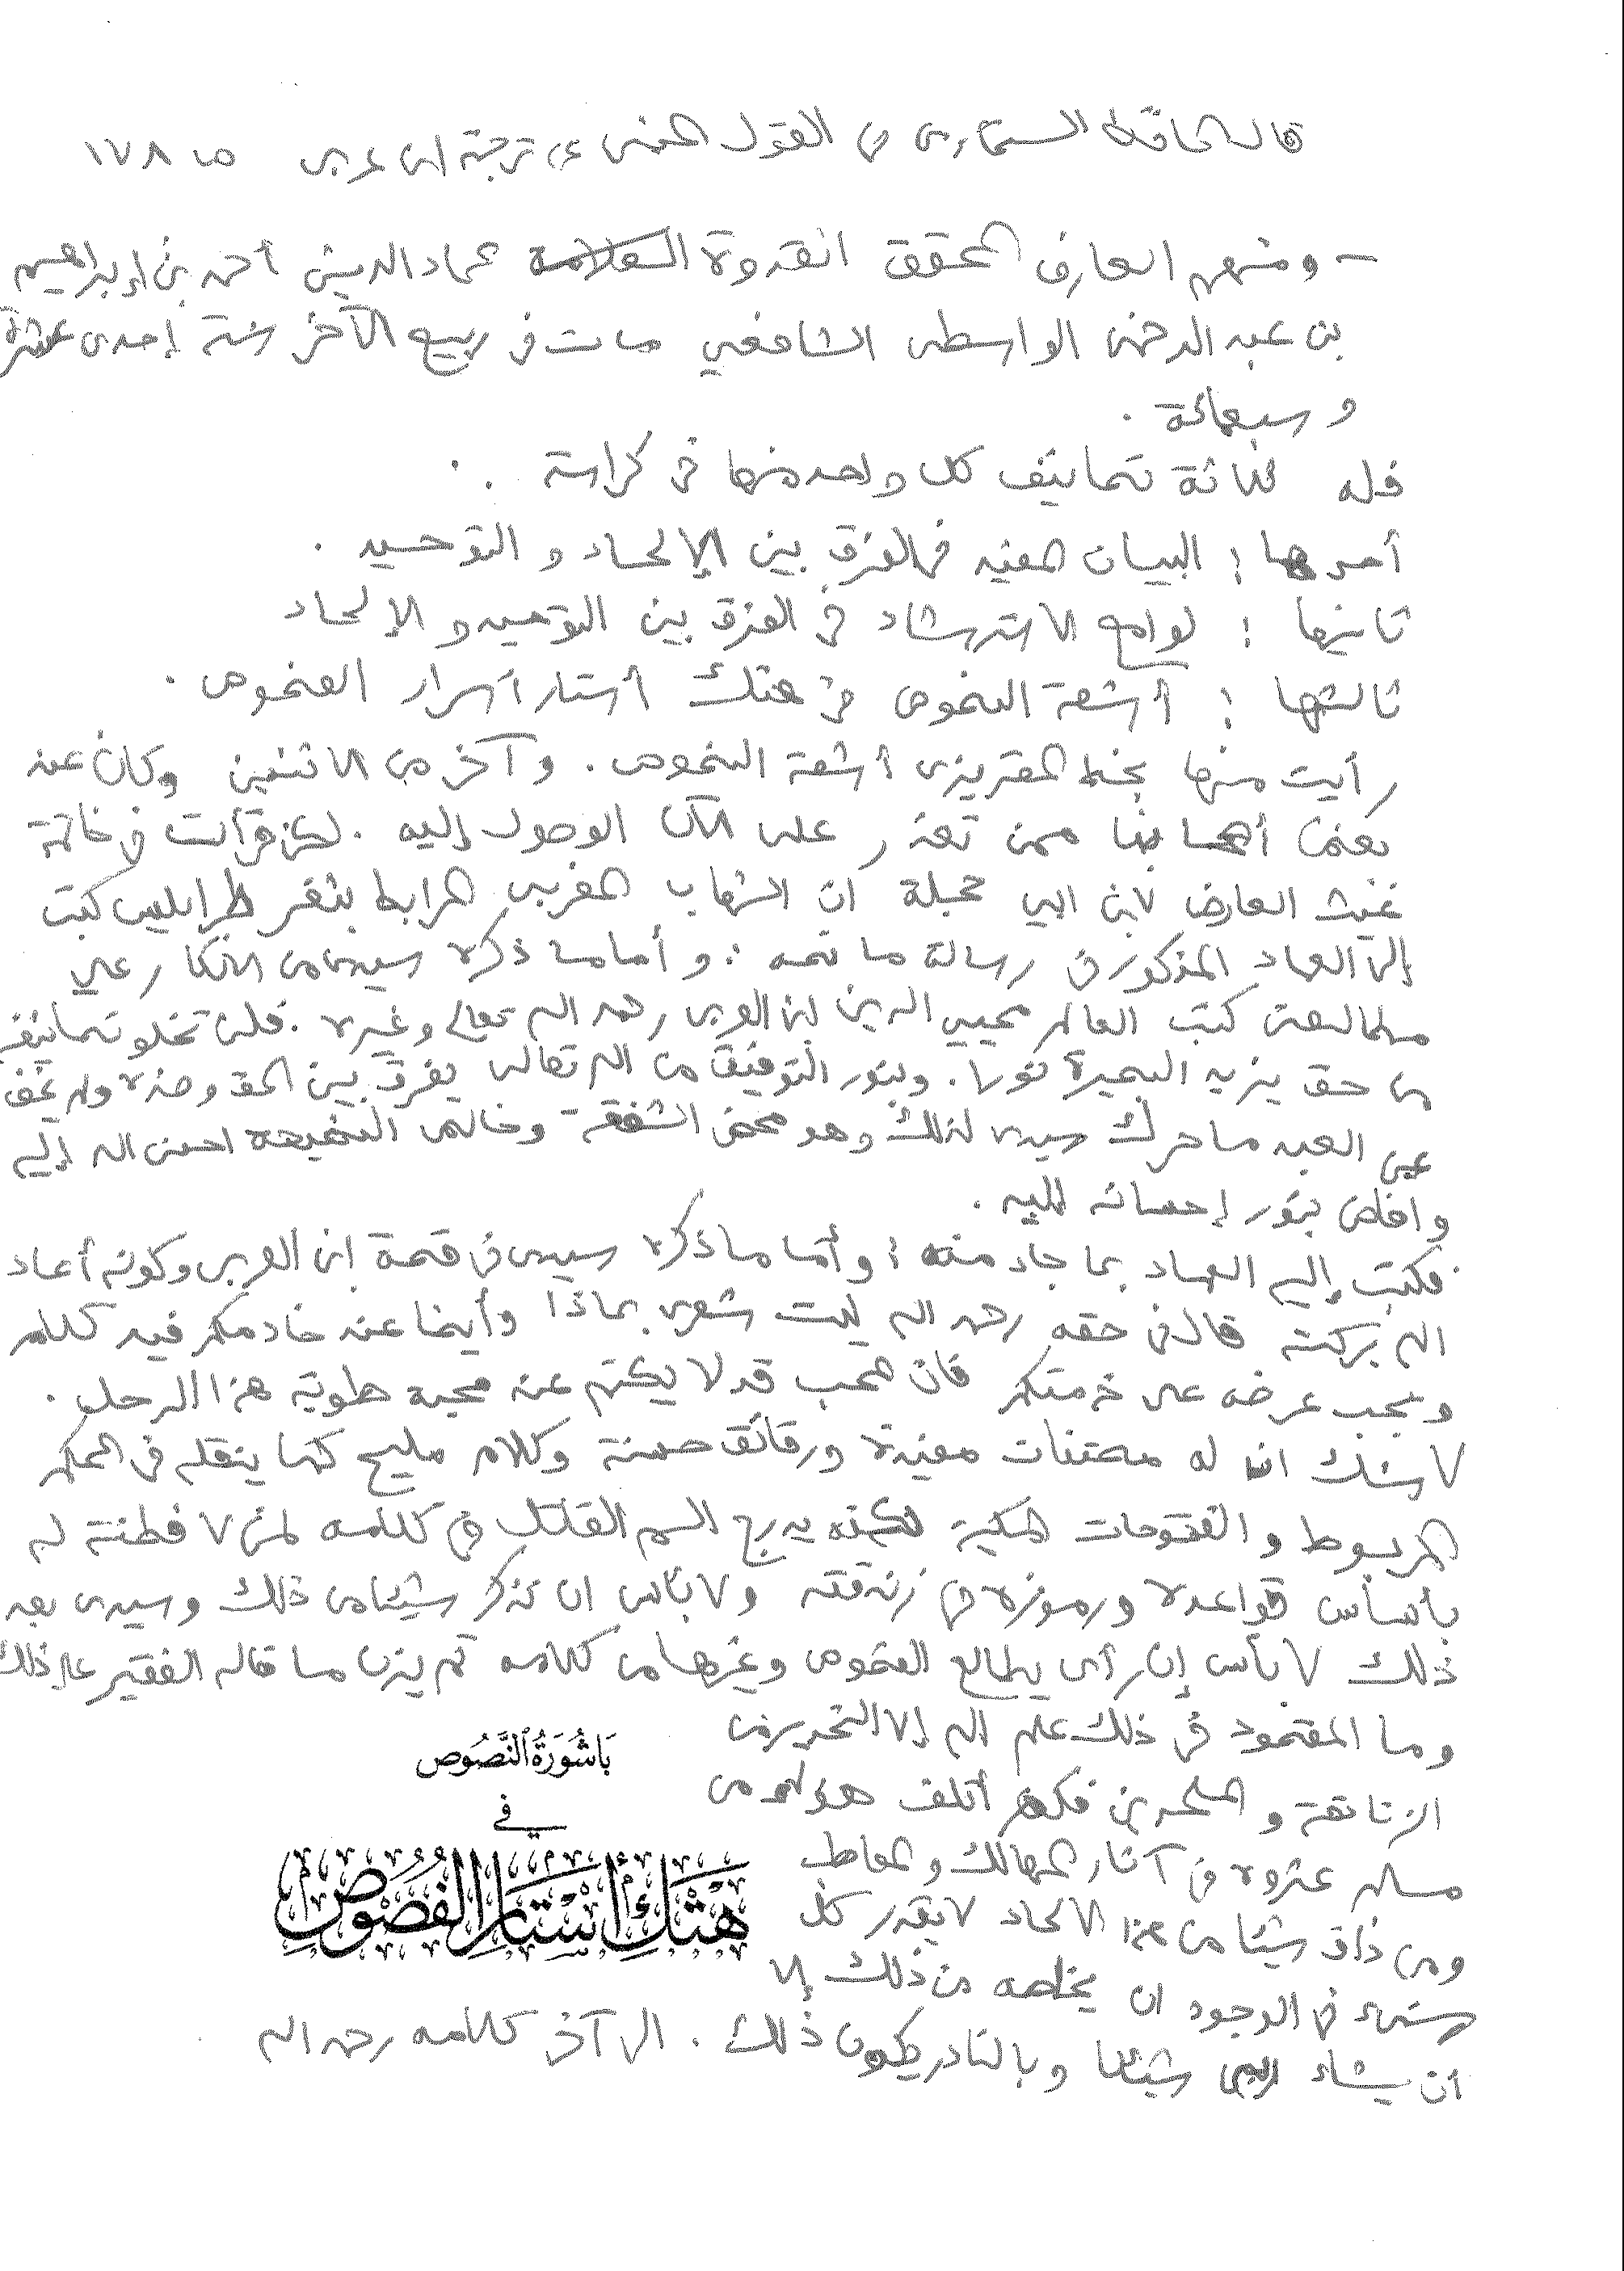 قال الحافظ السخاوي في القول المنبي عن ترجمة ابن عربي ص ١٧٨
- ومنهم العارف المحقق القدوة العلامة عماد الدين أحمد بن إبراهيم
بن عبد الرحمن الواسطي الشافعي مات في ربيع الآخر سنة إحدى عشرة
وسبعمائة .
فله ثلاثة تصانيف كل واحد منها في كراسة .
أحدها : البيان المفيد في الفرق بين الإلحاد و التوحيد .
ثانيها : لوامع الاسترشاد في الفرق بين التوحيد و الإلحاد
ثالثها : أشعة النصوص في هتك أستار أسرار الفصوص .
رأيت منها بخط المقريزي أشعة النصوص . وآخر من الاثنين وكان عند
بعض أصحابنا ممن تعذر على الآن الوصول إليه . لكن قرأت في خاتمة
غيث العارض لابن ابي حجلة ان الشهاب المغربي المرابط بثغر طرابلس كتب
إلى العماد المذكور في رسالة ما نصه : و أما ما ذكره سيدي من الانكار على
مطالعتي كتب العالم محيي الدين ابن العربي رحمه الله تعالى وغيره . فلن تخلو تصانيفه
من حق يزيد البصيرة نورا . وبنور التوفيق من الله تعالى يفرق بين الحق وضده ولم يخف
عن العبد ما حرك سيدي لذلك وهو محض الشفقة وخالص النصيحة احسن الله إليه
وافاض بنور إحسانه عليه .
فكتب إليه العماد بما جاد منه : وأما ما ذكره سيدي في قصة ابن العربي وكونه أعاد
الله بركته قال في حقه رحمه الله ليت شعري بماذا وأيضا عند خادمكم فيه كلام
ويجب عرضه على خدمتكم فان المحب قد لا يكتم عنه محبه طوية هذا الرجل .
لا شك ان له مصنفات مفيدة ورقائق حسنة وكلام مليح كما ينقله في المحكم
المربوط و الفتوحات المكية لكنه يدرج السم القاتل في كلامه لمن لا فطنة له
بأساس قواعده ورموزه في زندقته ولا بأس ان نذكر شيئا من ذلك وسيدي بعد
ذلك لا بأس إن رأى يطالع الفصوص وغيرها من كلامه ثم يزن ما قاله الفقير على ذلك
وما المقصود في ذلك علم الله إلا التحذير من
الزنادقة و الملحدين فكم أتلف هؤلاء من
مسلم عثروه في آثار المهالك والمعاطب
ومن ذاق شيئا من هذا الالحاد لا يقدر كل
من في الوجود ان يخلصه من ذلك إلا
أن يشاء ربي شيئا وبالنادر يكون ذلك . الى آخر كلامه رحمه الله
بَاشُورَةُ النَّصُوص
في
هَتْكِ أَسْتَارِ الفُصُوصِ